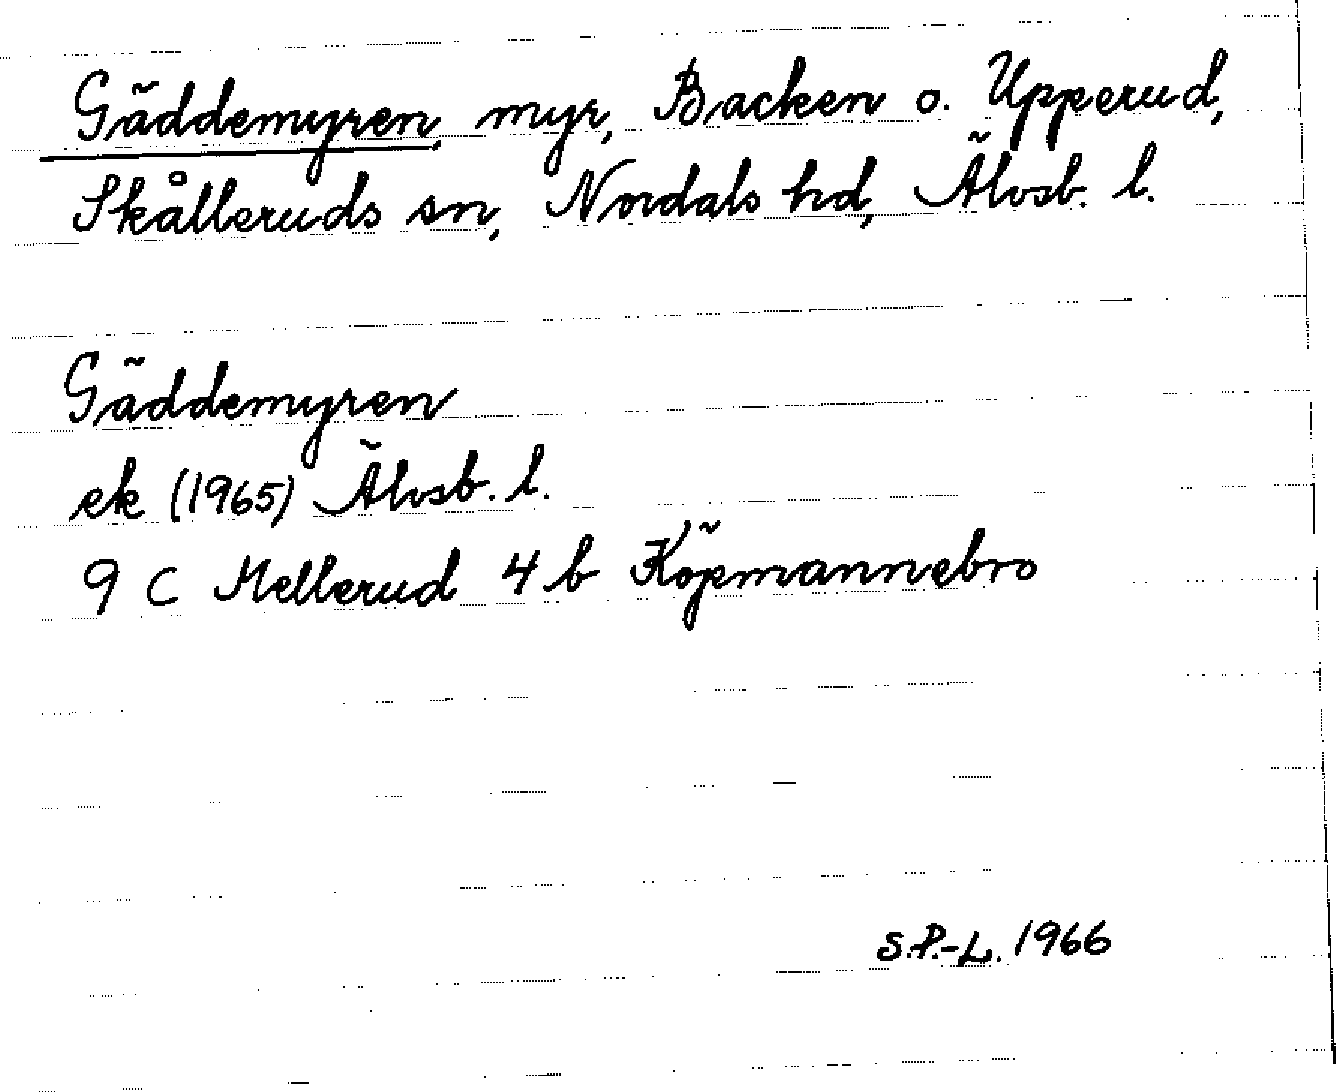 Gäddemyren, myr, Backen o. Upperud,
Skålleruds sn, Nordals hd, Älvsb. l.
Gäddemyren
ek (1965) Älvsb. l.
9 C Mellerud 4 b Köpmannebro
S.P.-L. 1966